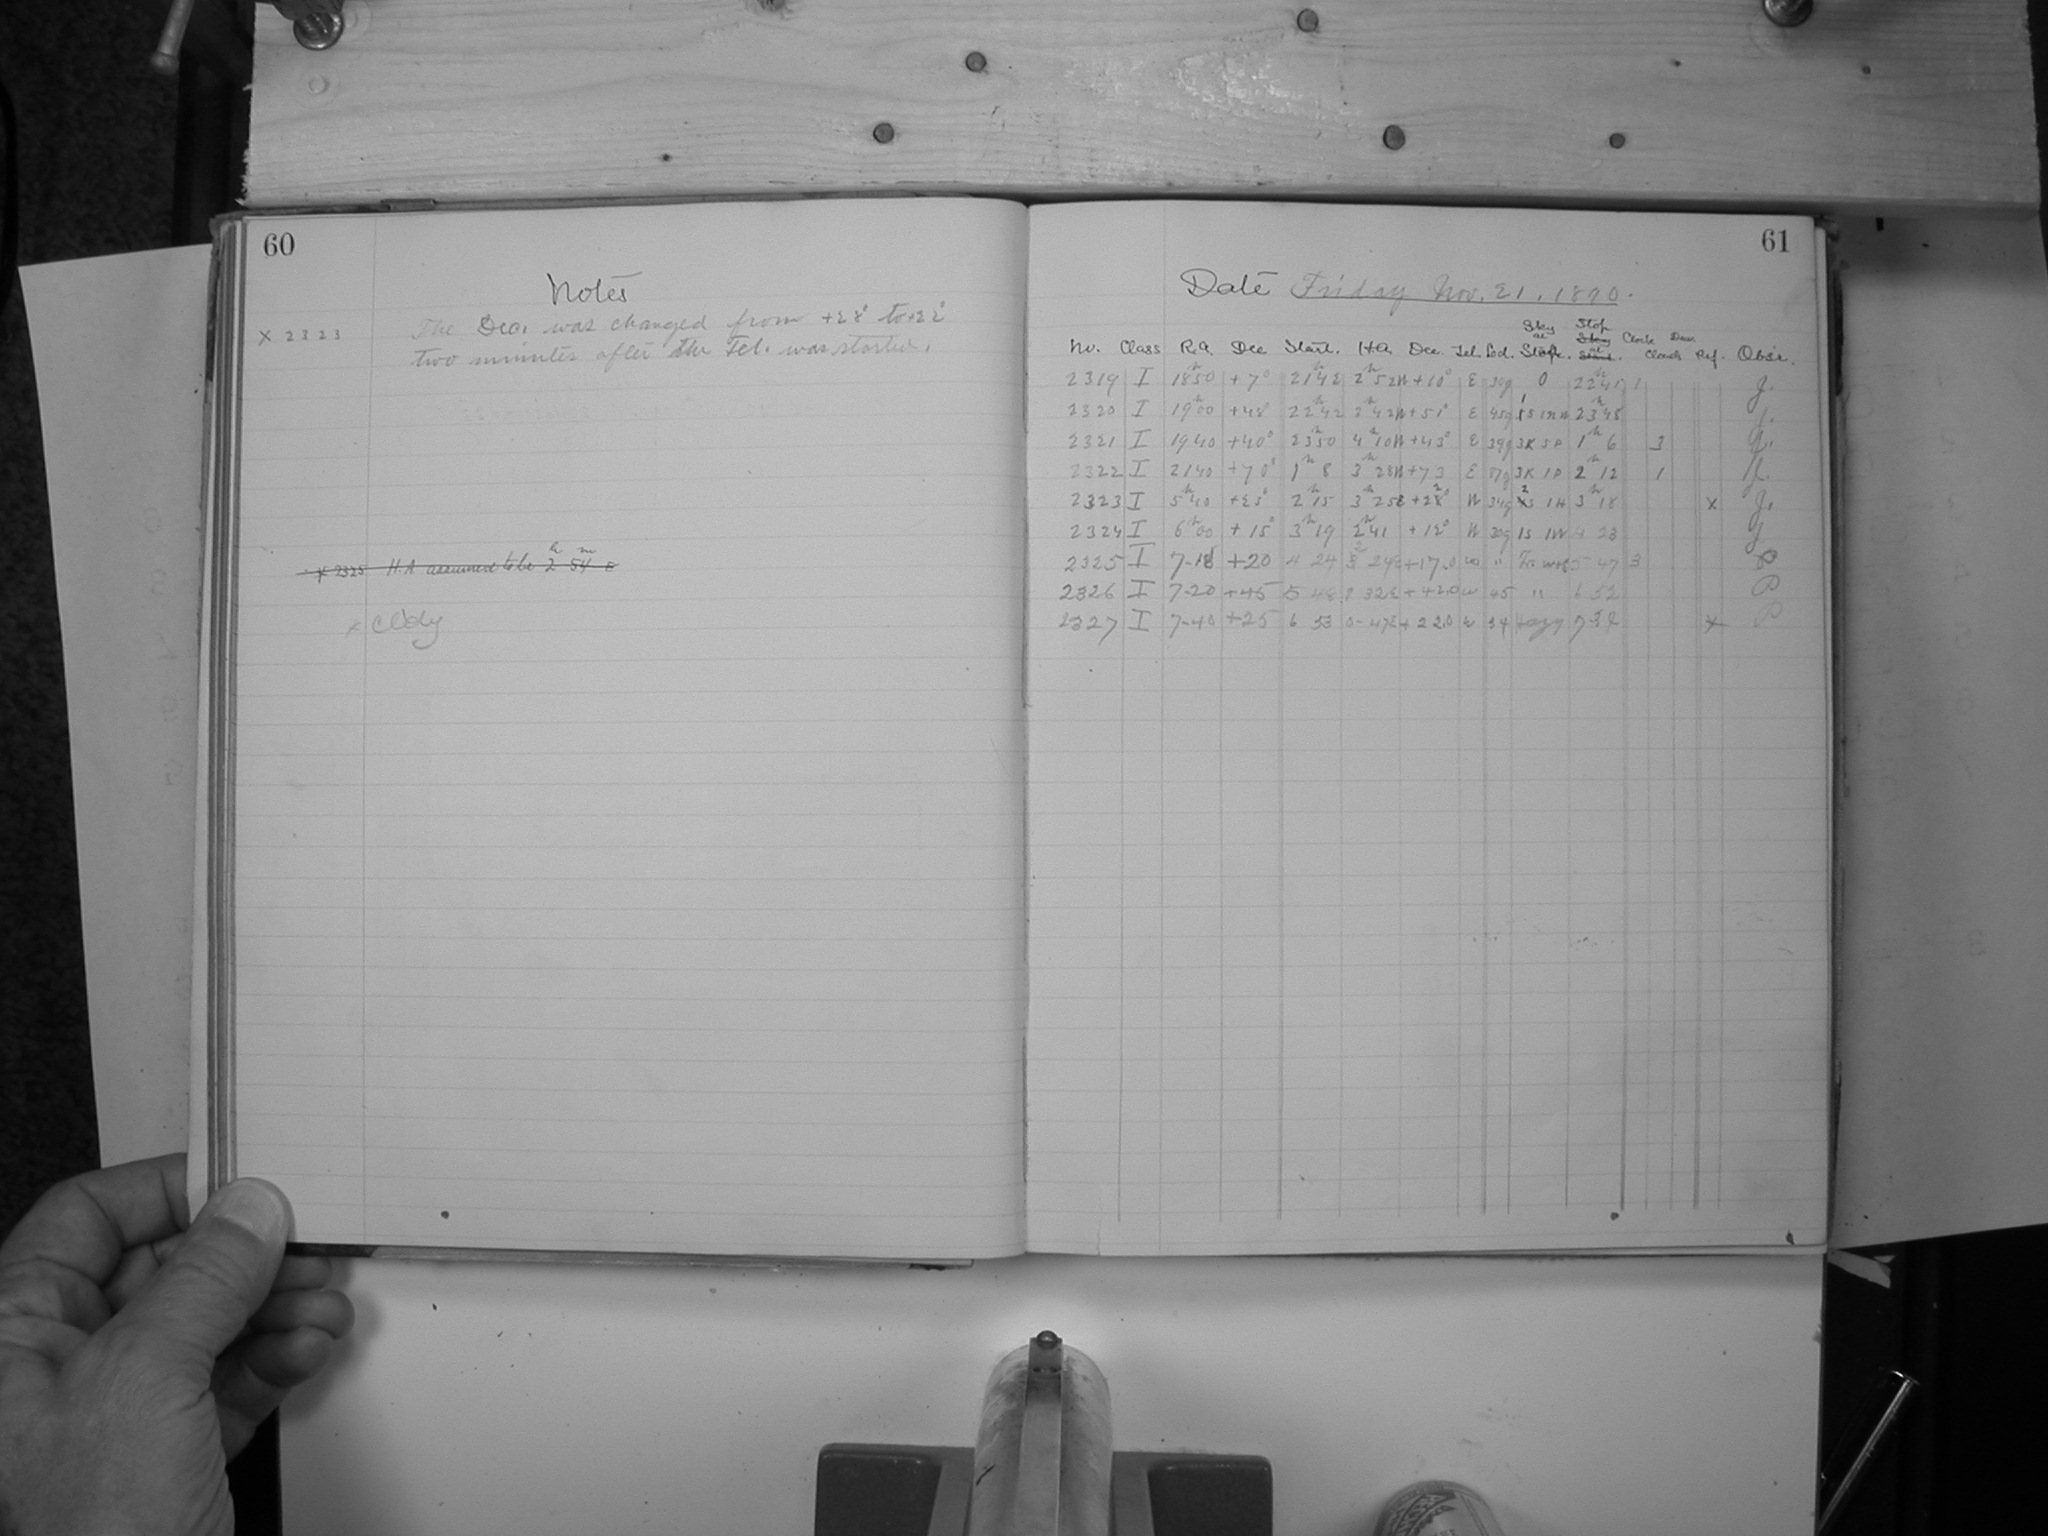 60
Notes
× 2323 The Dec. was changed from +28° to +22°
two minutes after the Tel. was started.
× 2325 H.A assumed to be 2h 54m E
× Cldy
61
Date Friday Nov. 21. 1890.
No. Class R.A. Dec Start. H.A. Dec. Tel. Led. Sky at Stop. Stop Clock Clouds Dew. Ref. Obsr.
2319 I 18h50 +7° 21h42 2h52W +10° E 30g 0 22h41 1 J.
2320 I 19h00 +48° 22h42 3h42W +51° E 45g 23h48 J.
2321 I 19 40 +40° 23h50 4h10W +43° E 39g 3K 5P 1h 6 3 J.
2322 I 21 40 +70° 1h 8 3h28W +73 E 87g 3K 1P 2h 12 1 J.
2323 I 5h40 +25° 2h15 3h25E +28° W 34g 1H 3h18 × J.
2324 I 6h00 +15° 3h19 2h41 +12° W 30g 1S 1W 4 23 J
2325 I 7-18 +20 4 24 24E +17.0 W " 5 47 3 P
2326 I 7-20 +45 5 48 32E +42.0 W 45 " 6 52 P
2327 I 7-40 +25 6 53 0-47E +22.0 W 34 Hazy 7 32 × P